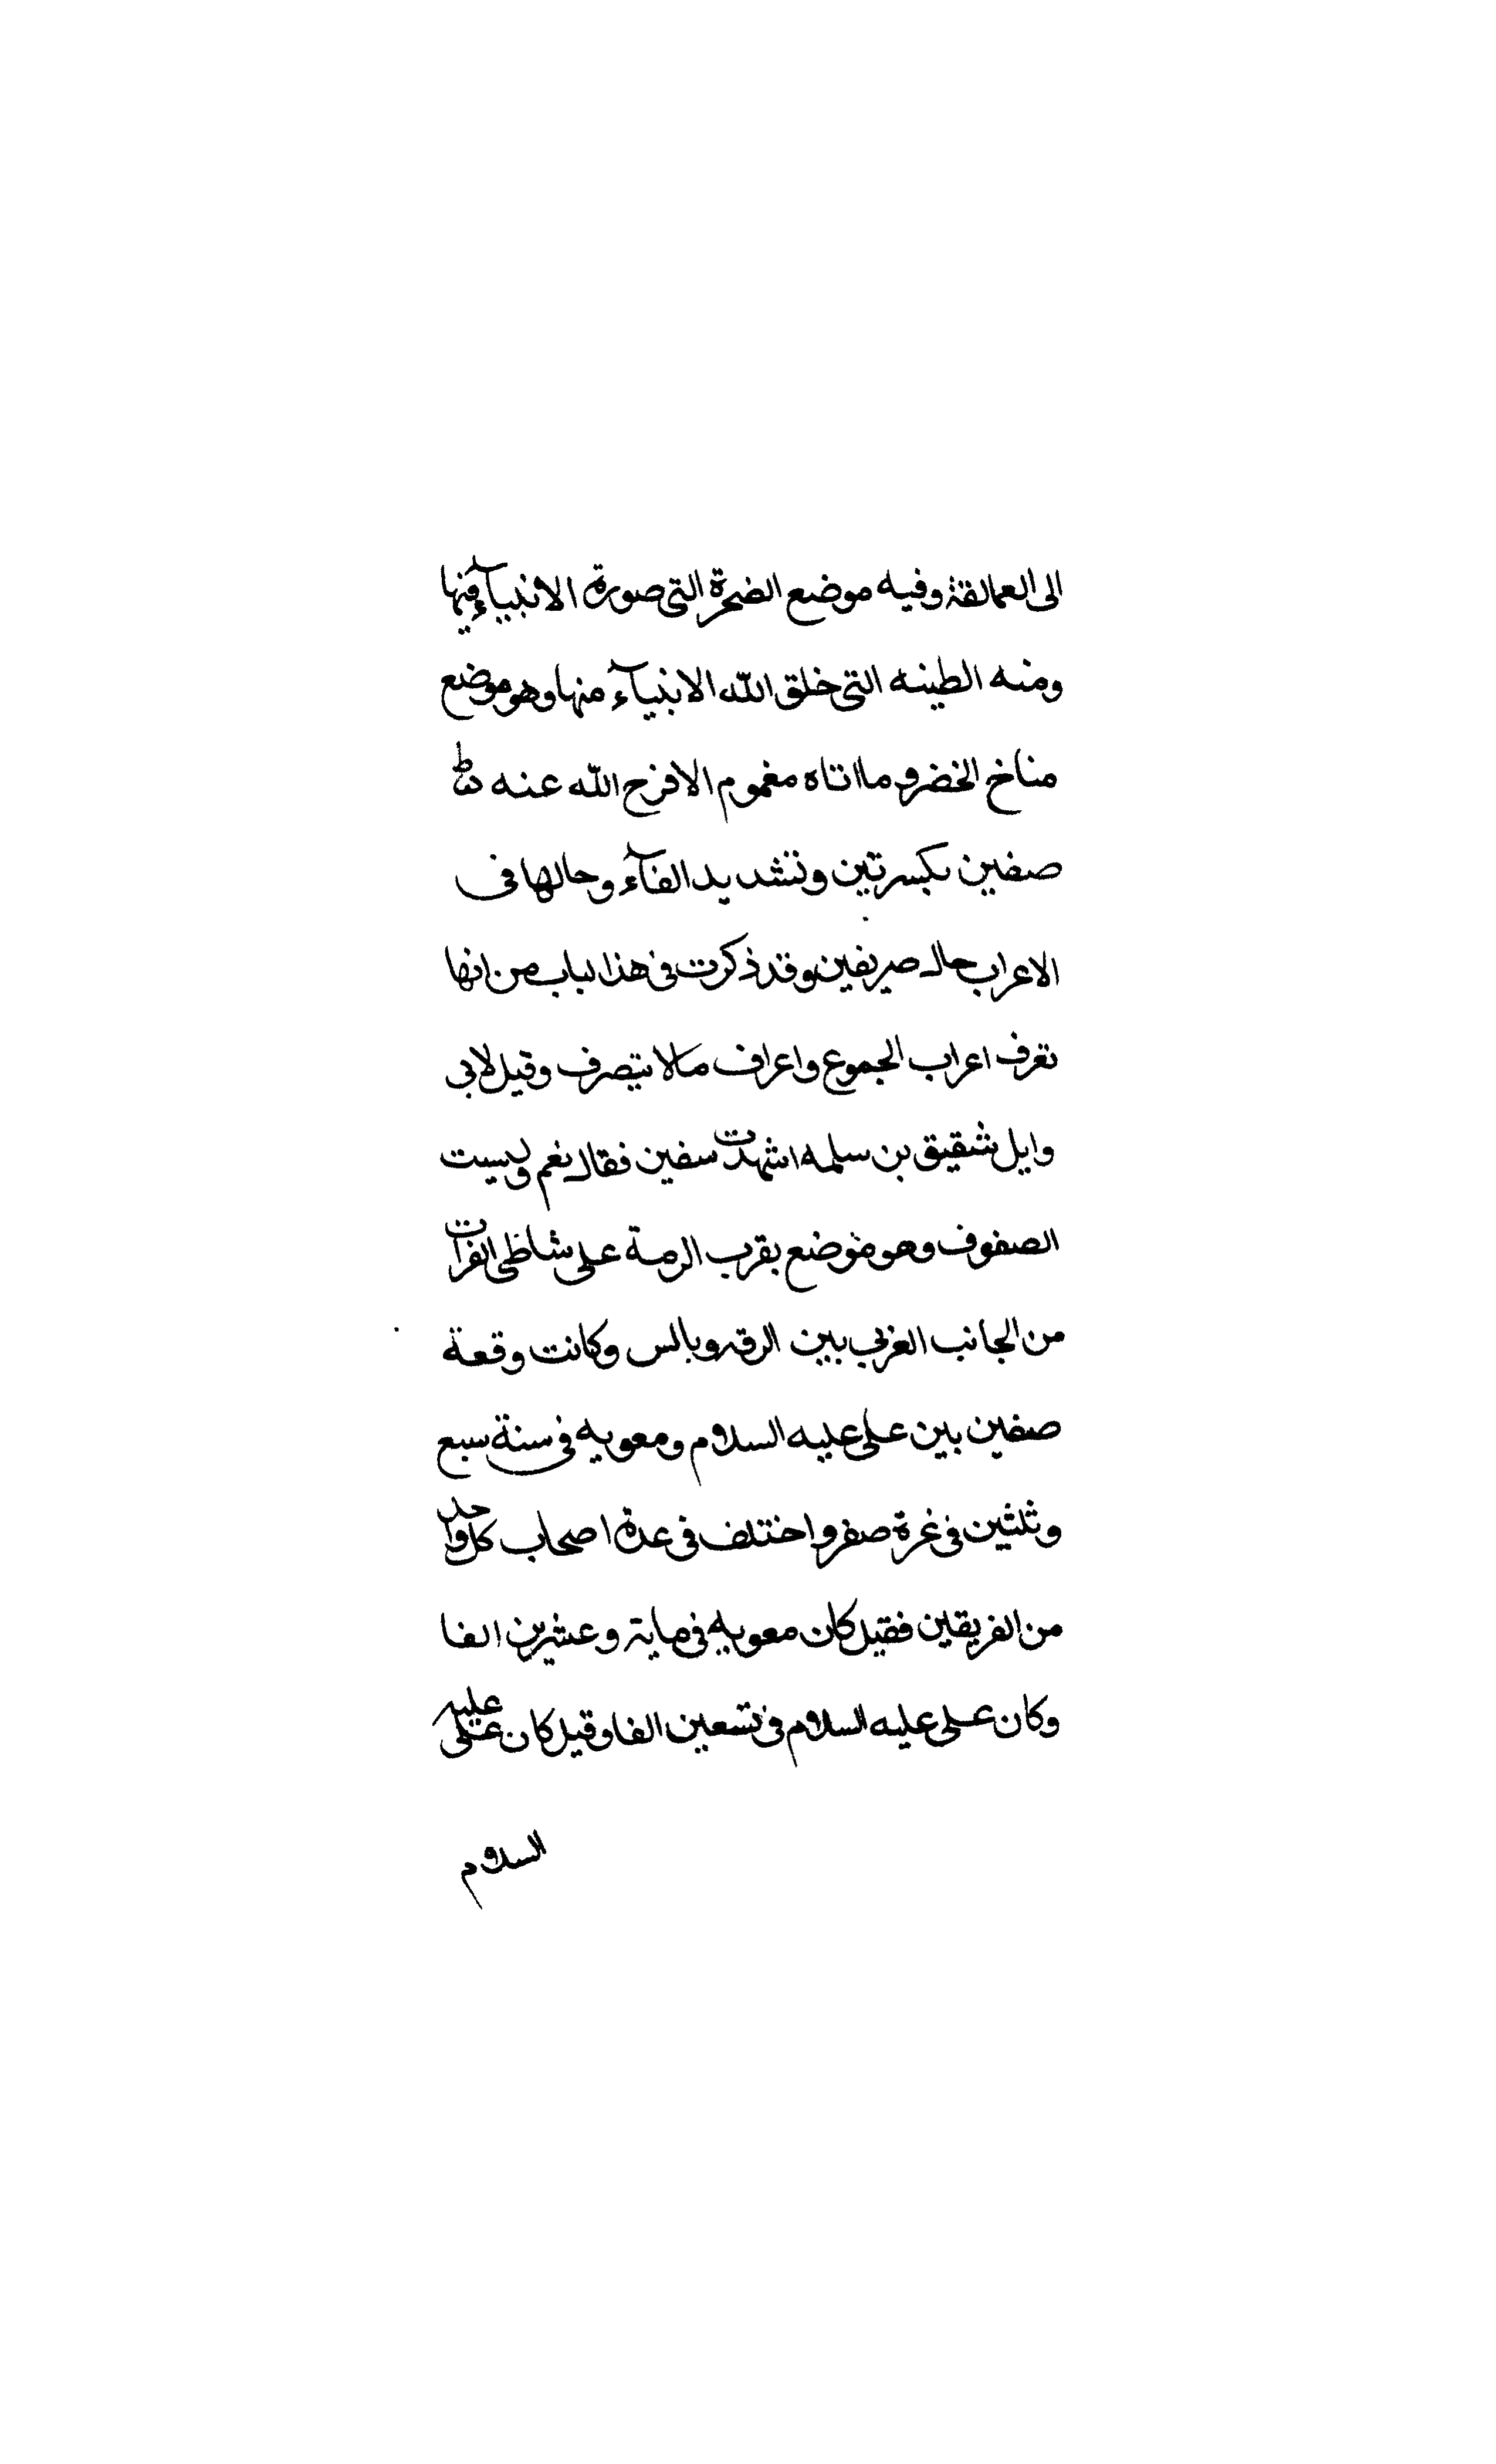 الى العمالقة وفيه موضع الضخرة التى صورة الانبيآء فيها
ومنه الطينه التى خلق الله الانبيآء منها وهو موضع
مناخ الخضر وما اتاه مغموم الا فرح الله عنه
صفين بكسرتين وتشديد الفآء وحالها فى
الاعراب حال صريفين وقد ذكرت فى هذا لباب من انها
تعرف اعراب الجموع واعراف مالا يتصرف وقيل لابى
وايل شقيق بن سلمه اشهدت سفين فقال نعم وبيست
الصفوف وهو موضع بقرب الرمة على شاظى الفرات
من الجانب الغربي بين الرقه وبالس وكانت وقعة
صفين بين على عليه السلام ومعويه فى سنة سبع
وثلثين فى غرة صفر واختلف فى عدة اصحاب كل واحد
من الفريقين فقيل كان معويه فى ماية وعشرين الفا
وكان على عليه السلام فى تسعين الفا وقيل كان على عليه
السلام